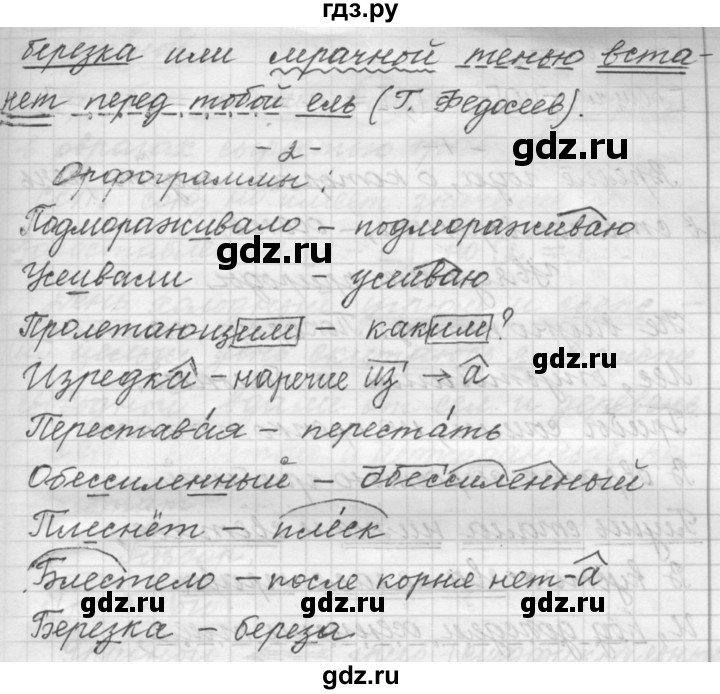 гдз.ру
березка или мрачной тенью вста-
нет перед тобой ель (Г. Федосеев).
gdz.ru
-2-
Орфограммы:
Подмораживало - подмораживаю
gdz.ru
Усеивали - усеиваю
Пролетающим - каким?
gdz.ru
Изредка - наречие из → а
Переставая - перестать
Обессиленный - обессиленный
Плеснёт - плеск
Блестело - после корня нет -а
gdz.ru gdz.ru gdz.ru
Березка - береза
gdz.ru